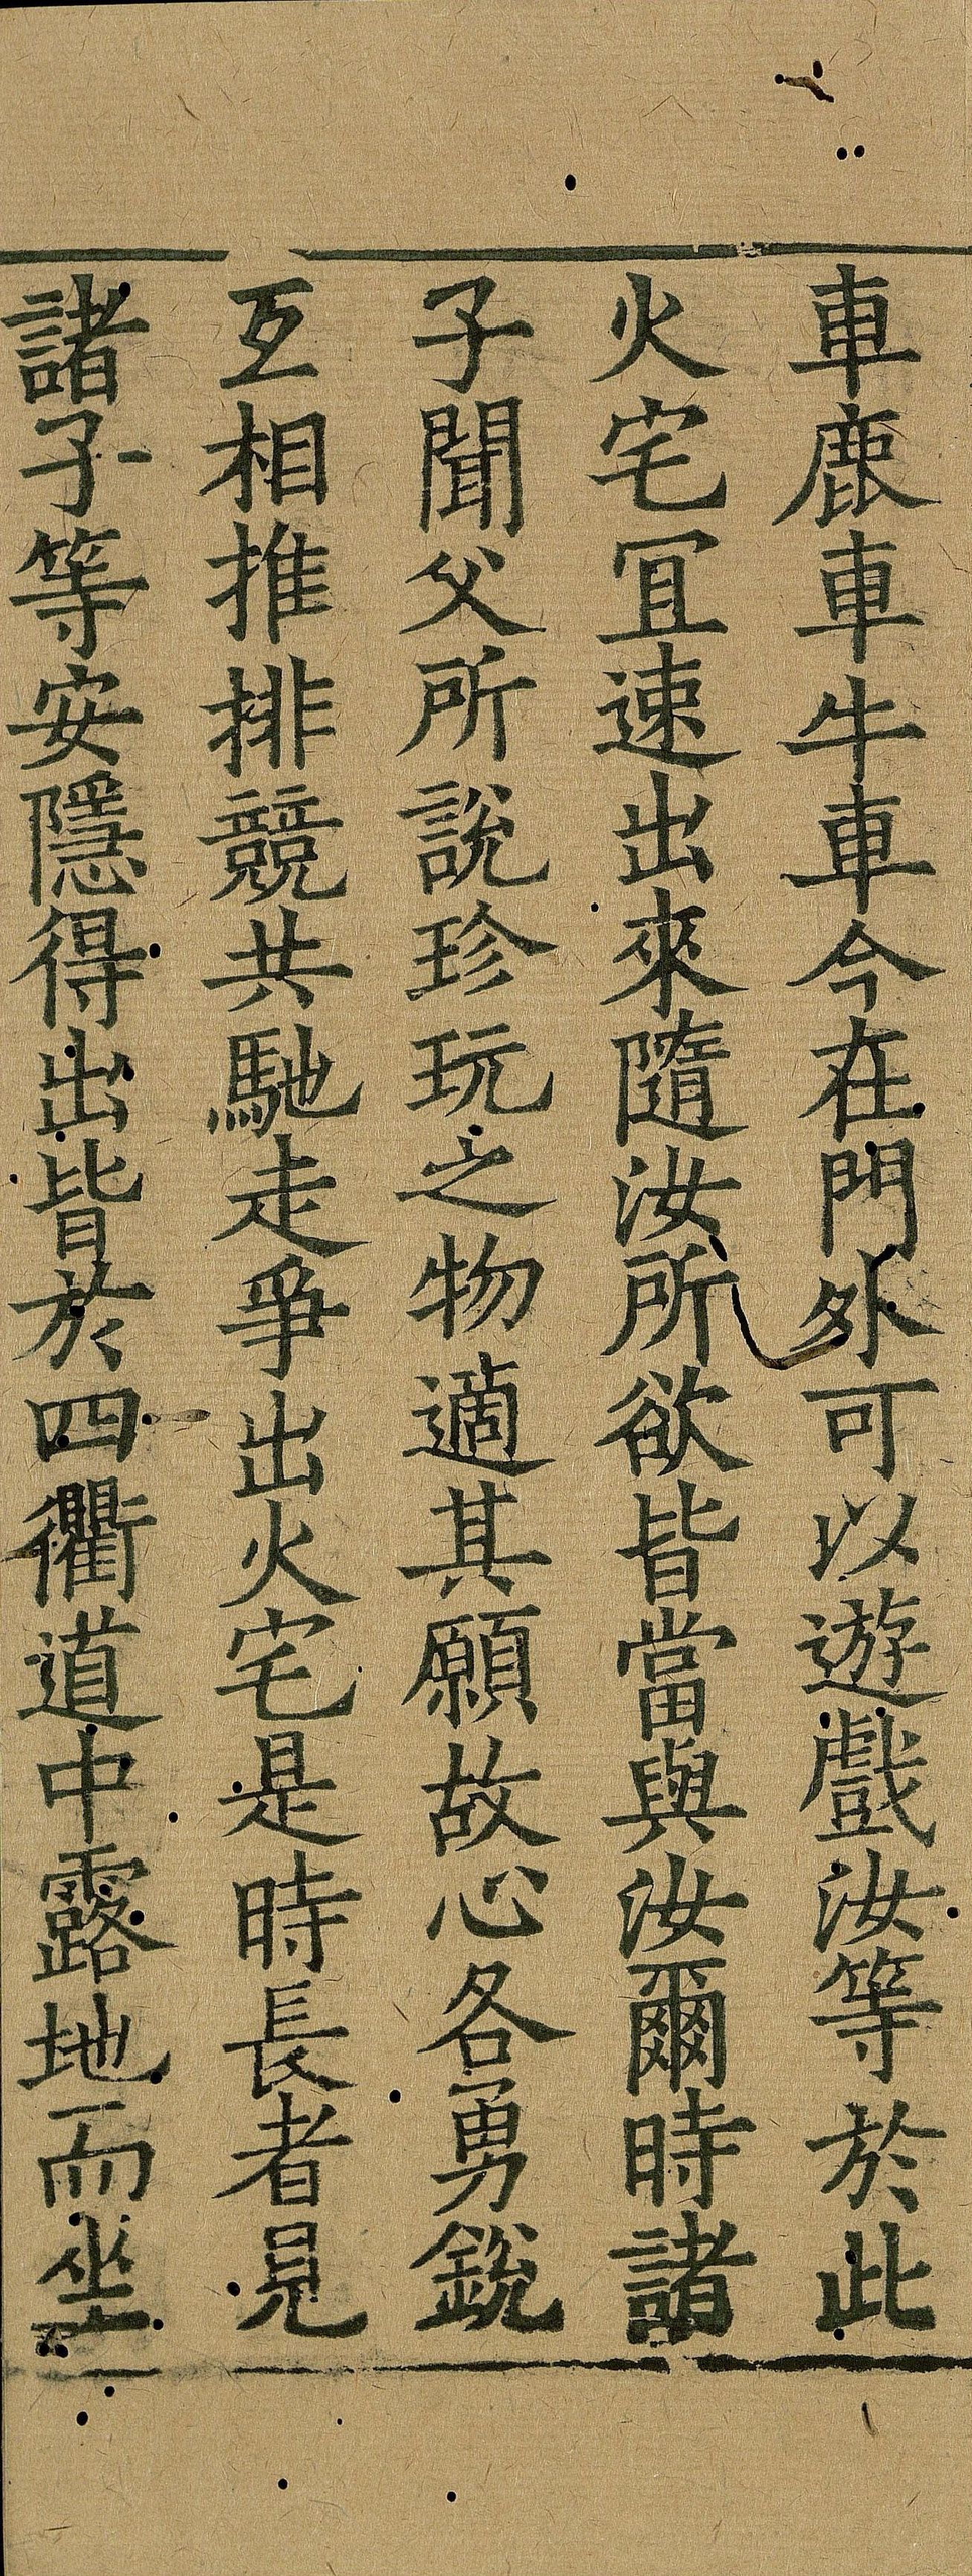 車鹿車牛車今在門外可以遊戲汝等於此
火宅冝速出來隨汝所欲皆當與汝爾時諸
子聞父所說珍玩之物適其願故心各勇銳
互相推排競共馳走爭出火宅是時長者見
諸子等安隱得出皆於四衢道中露地而坐